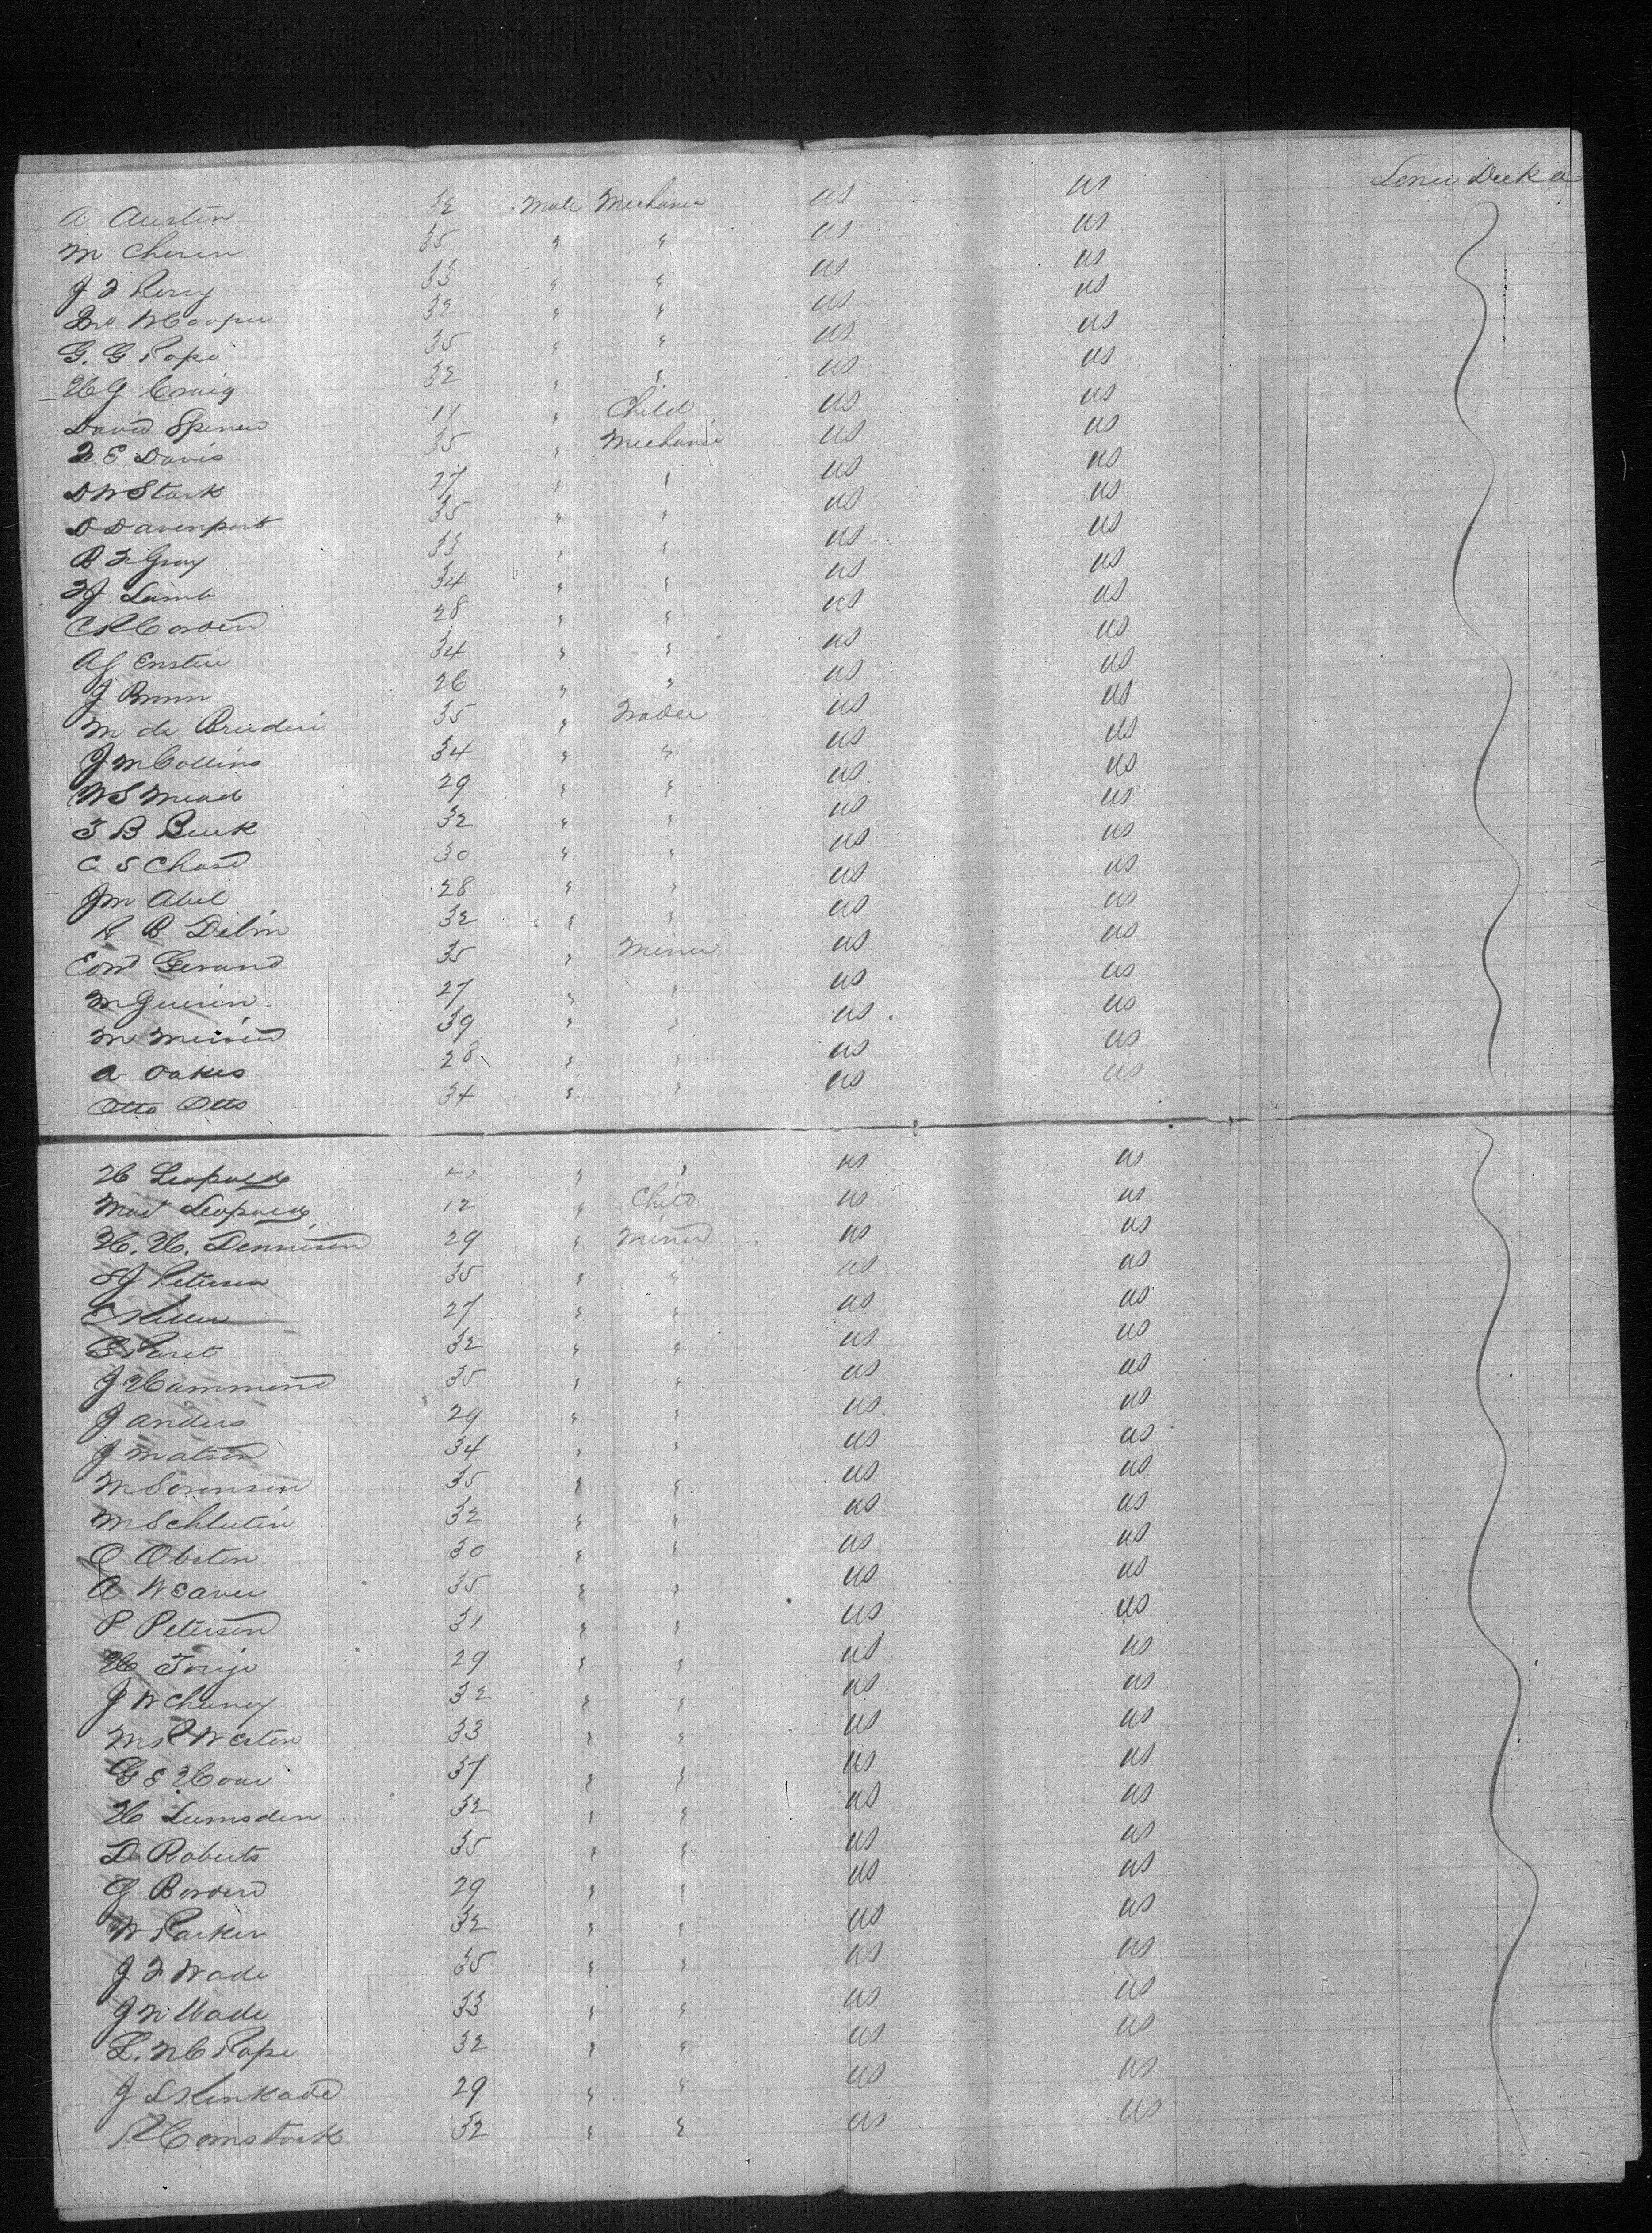 A Austin 32 Male Mechanic US US Lower Deck
M Cheren 35 " " US US
J F Perry 33 " " US US
Jno W Cooper 32 " " US US
G. G Pope 35 " " US US
H J Craig 32 " " US US
David Spencer 11 " Child US US
F. E. Davis 35 " Mechanic US US
D W Stark 27 " " US US
D Davenport 35 " " US US
B F Gray 33 " " US US
F J Lamb 34 " " US US
C R Corden 28 " " US US
A J Enstein 34 " " US US
J Brown 26 " " US US
M de Bruderi 35 " Trader US US
J M Collins 34 " " US US
W S Mead 29 " " US US
T B Buck 32 " " US US
C S Chase 30 " " US US
J M Abel 28 " " US US
R B Delvin 32 " " US US
Edwd Gerand 35 " Miner US US
M Guerin 27 " " US US
M 39 " " US US
A Oakes 28 " " US US
Otto Otto 34 " " US US
H Leopold " " US US
Mast Leopold 12 " Child US US
H. H. Dennison 29 " Miner US US
S J Peterson 35 " " US US
C Keller 27 " " US US
E Paret 32 " " US US
J Hammond 35 " " US US
J Anders 29 " " US US
J Matson 34 " " US US
M Sorensen 35 " " US US
M Schlutin 32 " " US US
O Obsten 30 " " US US
A Weaver 35 " " US US
P Peterson 31 " " US US
H 29 " " US US
J W Cheney 32 " " US US
M P Weston 33 " " US US
G E Hoar 37 " " US US
H Lumsden 32 " " US US
D Roberts 35 " " US US
J Borden 29 " " US US
W Parker 32 " " US US
J F Wade 35 " " US US
J W Wade 33 " " US US
L. W C Pope 32 " " US US
J S Kinkade 29 " " US US
R Comstock 32 " " US US